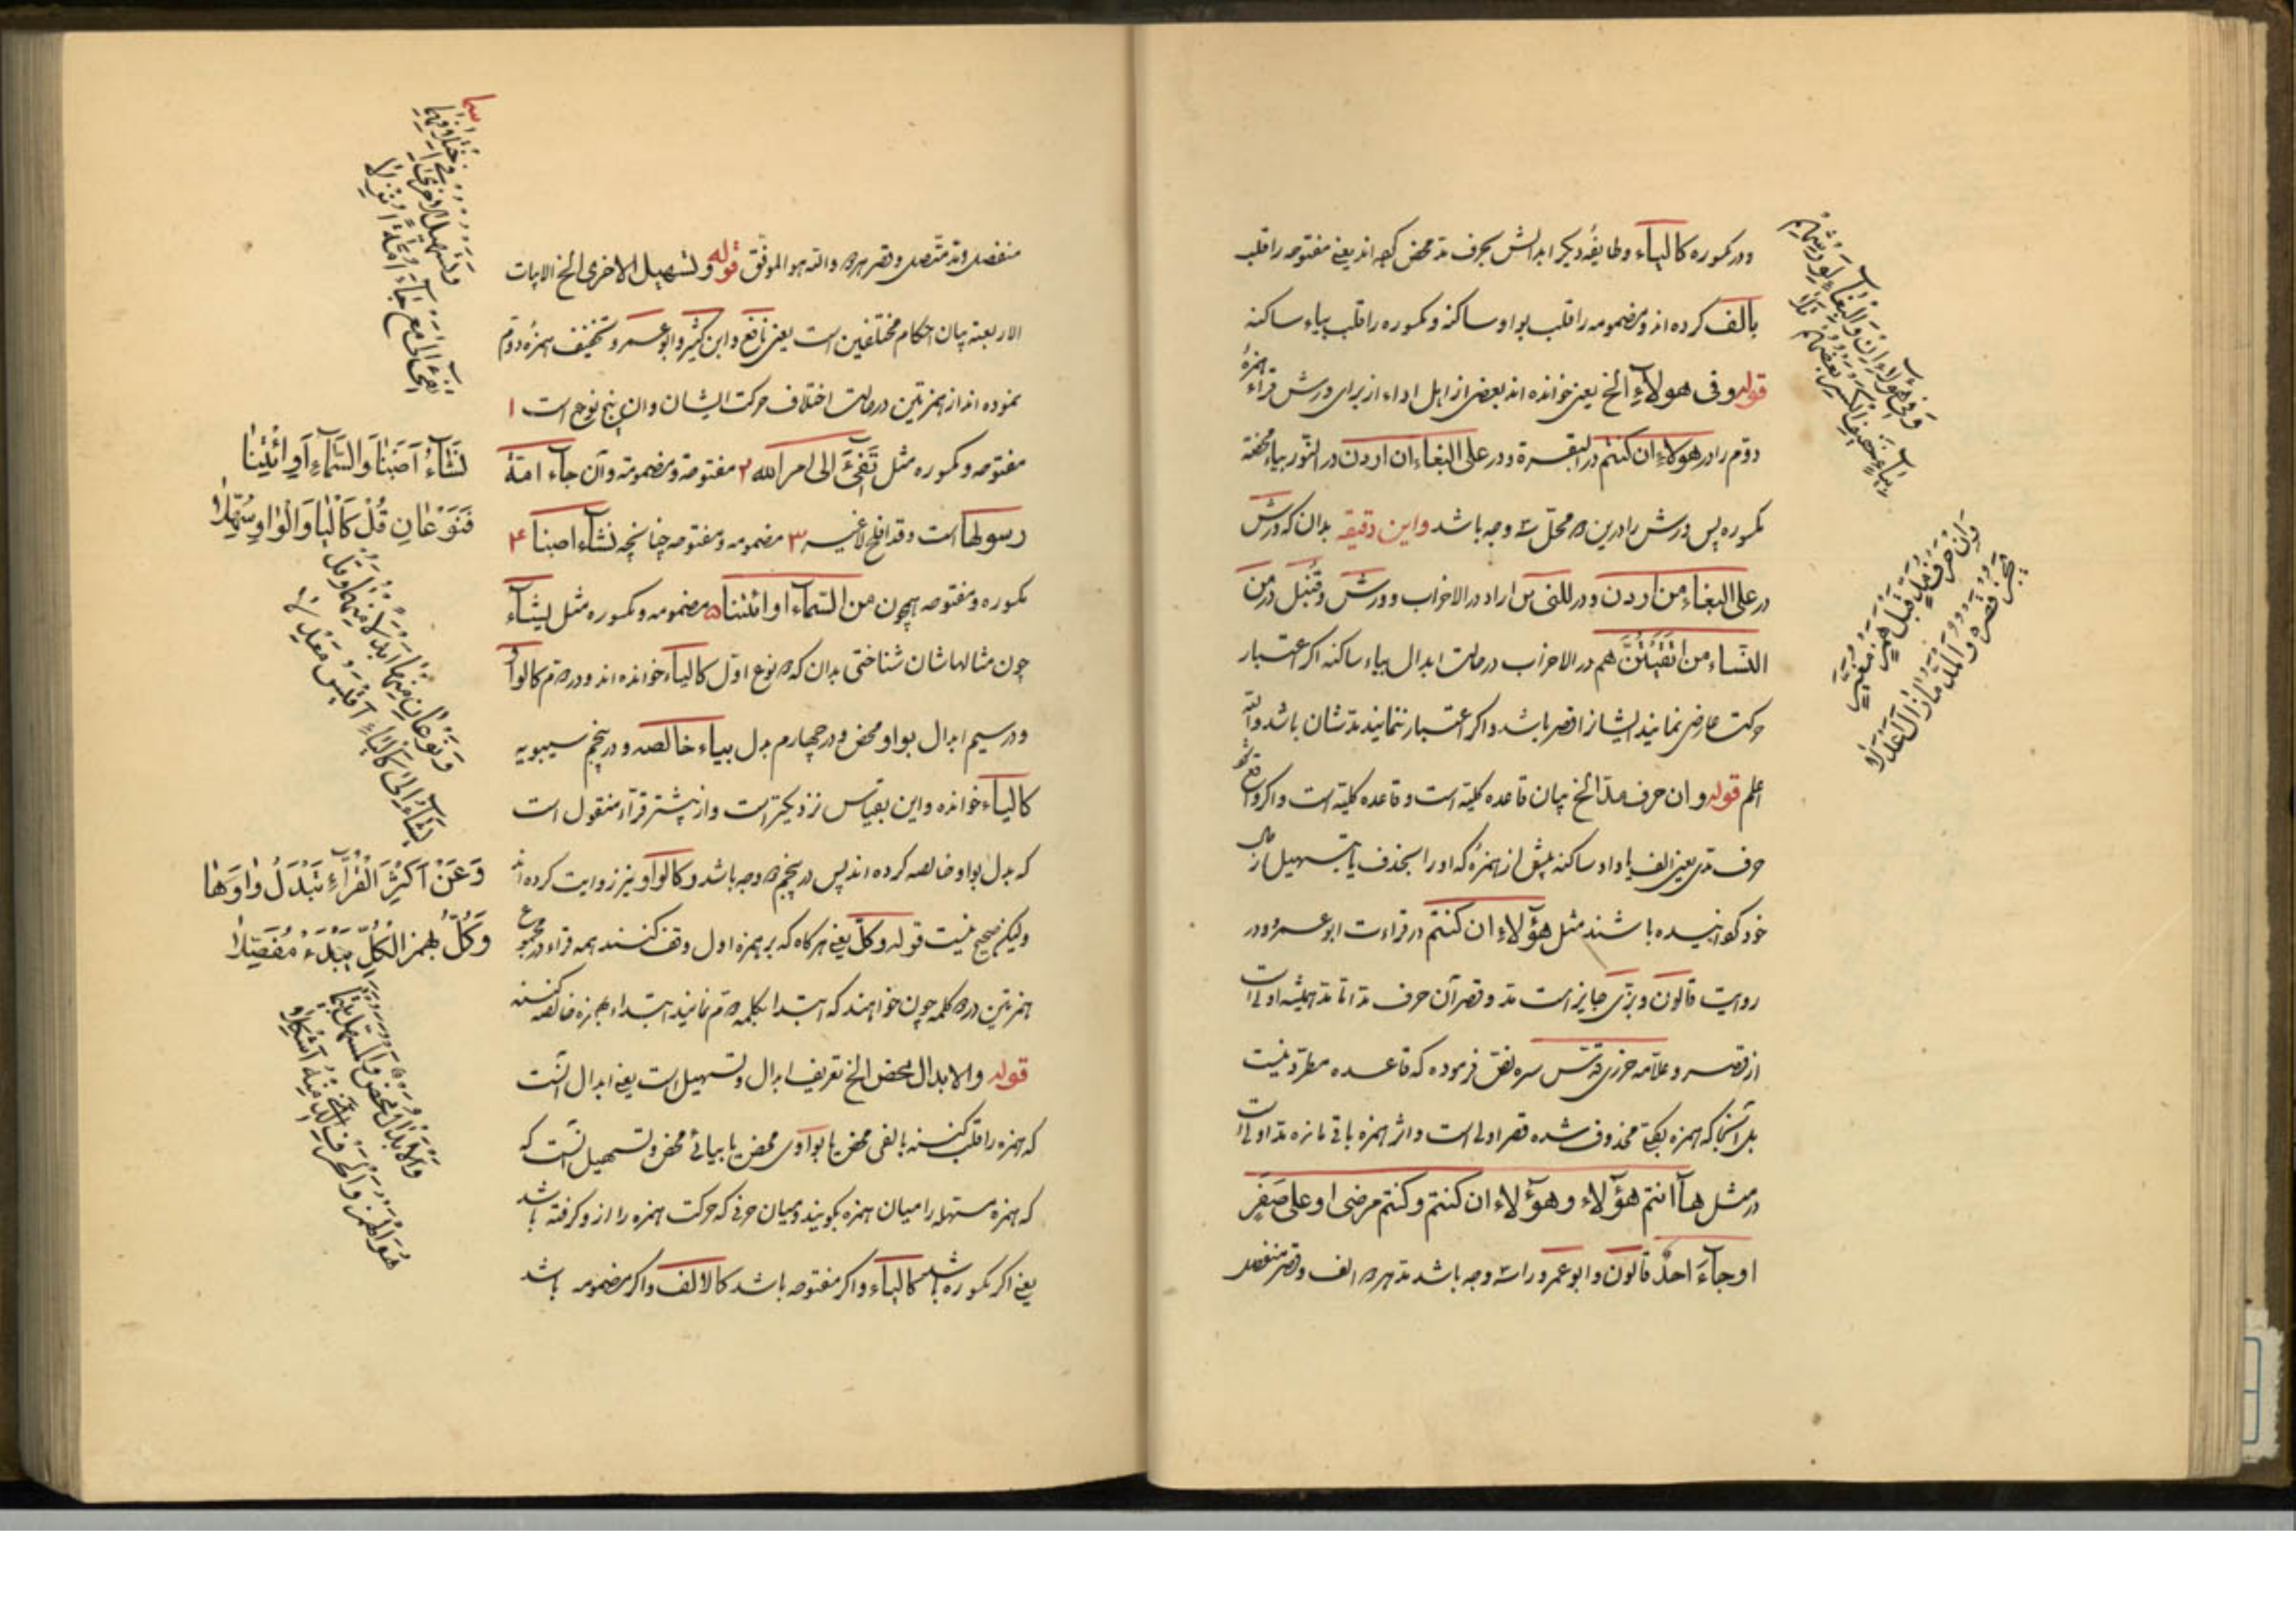 ودر مکسوره کالیاء وطایفه دیگر ابدالش بحرف مد محض کرده اند یعنی مفتوحه را قلب
بالف کرده اند ومضمومه را قلب بواو ساکنه ومکسوره را قلب بیاء ساکنه
قوله وفی هولاء الخ یعنی خوانده اند بعضی از اهل اداء از برای ورش قراء همزهٔ
دوّم را در هولاء ان کنتم در البقرة ودر علی البغاء ان اردن در النّور بیاء مختفه
مکسوره پس ورش را درین دو محلّ سه وجه باشد واین دقیقه بدان که ورش
در علی البغاء من اردن ودر للنبی من اراد در الاحزاب وورش وقنبل در من
النّساء من اتقیتنّ هم در الاحزاب در حالت ابدال بیاء ساکنه اکر اعتبار
حرکت عارضی نمایند ایشانرا قصر باشد واکر اعتبار ننمایند مدشان باشد والله
اعلم قوله وان حرف مدّ الخ بیان قاعده کلیّه است وقاعده کلیّه است واکر واقع شود
حرف مدّی یعنی الف یا واو ساکنه پیش از همزهٔ که او را بحذف یا بتسهیل از حال
خود کردانیده باشند مثل هؤلاء ان کنتم در قراءت ابو عمرو ودر
روایت قالون وبزّی جایز است مد وقصر آن حرف مد اما مد همیشه اولی است
از قصر وعلامه جزری قدّس سره نصّ فرموده که قاعده مطرّد نیست
بل آنجا که همزه بکلیّة محذوف شده قصر اولی است واثر همزه باقی مانده مد اولی است
در مثل هآ انتم هؤلاء وهؤلاء ان کنتم وکنتم مرضی او علی سفر
او جآء احد قالون وابو عمرو را سه وجه باشد مد هر دو الف وقصر منفصل
وفی هؤلاء ان والبغاء لورشهم
بیاء خفیف الکسر بعضهم تلا
وان حرف مد قبل همز مغیر
یجز قصره والمد ما زال اعدلا
منفصل ومد متّصل وقصر هر دو والله هو الموفّق قوله وتسهیل الاخری الخ الابیات
الاربعة بیان احکام مختلفین است یعنی نافع وابن کثیر وابو عمرو تخفیف همزهٔ دوّم
نموده اند از همزتین در حالت اختلاف حرکت ایشان وان پنج نوع است ۱
مفتوحه ومکسوره مثل تفیء الی امر الله ۲ مفتوحه ومضمومة وآن جاء امة
رسولها است وقد افلح لا غیر ۳ مضمومه ومفتوحه چنانچه نشاء اصبنا ۴
مکسوره ومفتوحه همچون من السماء او ائتنا ۵ مضمومه ومکسوره مثل یشآء
چون مثالهاشان شناختی بدان که دو نوع اوّل کالیاء خوانده اند ودر دوّم کالواو
ودر سیم ابدال بواو محض ودر چهارم بدل بیاء خالصه ودر پنجم سیبویه
کالیاء خوانده واین بقیاس نزدیکتر است واز بیشتر قرّاء منقول است
که بدل بواو خالصه کرده اند پس در پنجم دو وجه باشد وکالواو نیز روایت کرده اند
ولیکن صحیح نیست قوله وکلّ یعنی هر کاه که بر همزه اول وقف کنند همه قراء در مجموع
همزتین در دو کلمه چون خواهند که ابتدا بکلمه دوّم نمایند ابتداء بهمزه خالصه کنند
قوله والابدال محض الخ تعریف ابدال وتسهیل است یعنی ابدال آنست
که همزه را قلب کنند بالفی محض یا بواوی محض یا بیائی محض وتسهیل آنست که
که همزه مستهله را میان همزه بکویند ومیان حرفی که حرکت همزه را از او کرفته باشد
یعنی اکر مکسوره باشد کالیاء واکر مفتوحه باشد کالالف واکر مضمومه باشد
وتسهیل الاخری فی اختلافهما سما
تفیء الی مع جاء امة انزلا
نَشَآءُ أَصَبْنَا وَالسَّمَاءِ أَوِ ائْتِنَا
فَنَوْعَانِ قُلْ كَالْيَا وَالْوَاوِ سُهِّلَا
ونوعان منها ابدلا منهما وقل
یشاء الی کالیاء اقیس معدلا
وَعَنْ أَكْثَرِ الْقُرَّاءِ تُبْدَلُ وَاوَهَا
وَكُلٌّ بِهَمْزِ الْكُلِّ يَبْدَءُ مُفَصِّلَا
والابدال محض والمسهل بین ما
هو الهمز والحرف الذی منه اشکلا